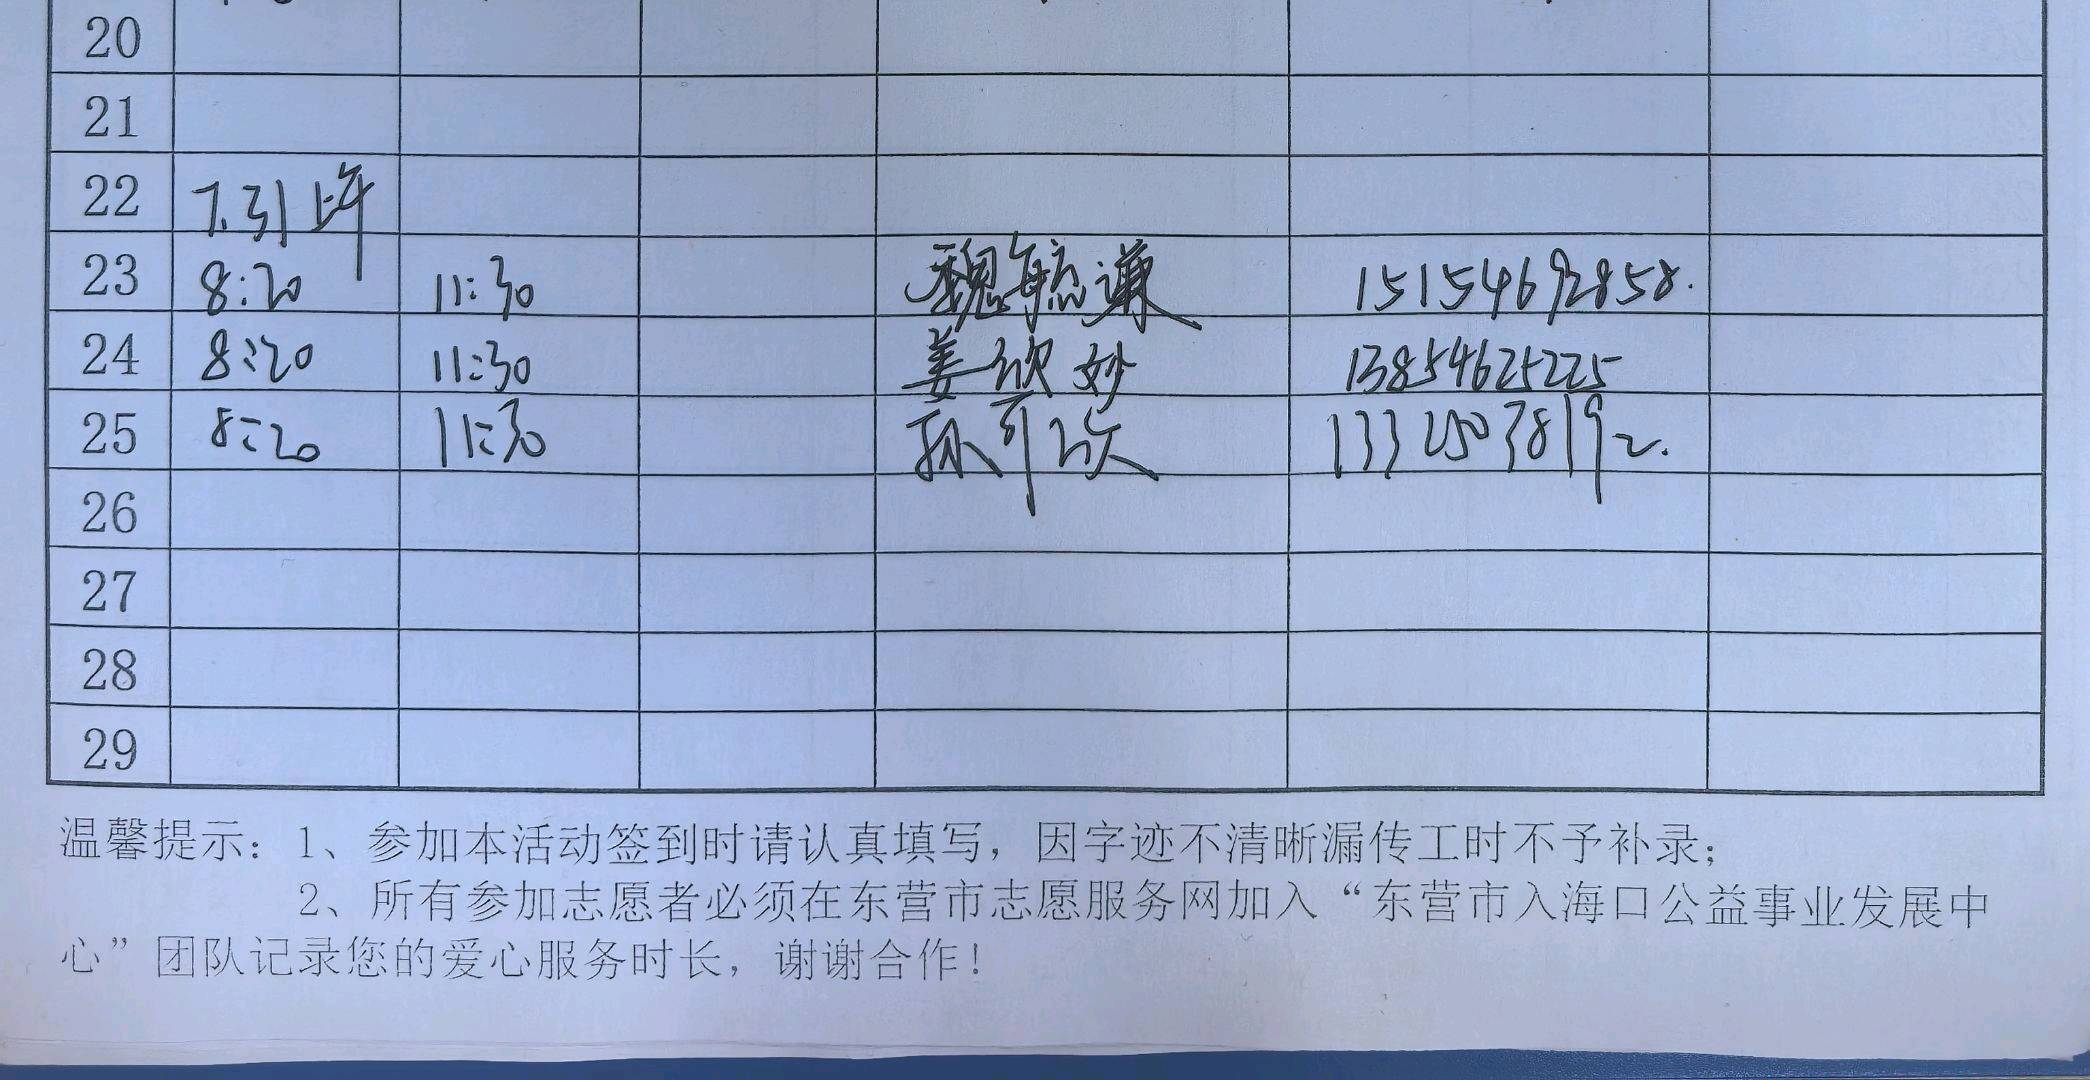 20
21
22 7.31 上午
23 8:20 11:30 魏毓谦 15154692858.
24 8:20 11:30 姜欣妙 13854625225
25 8:20 11:30 孙可欣 13325038192.
26
27
28
29
温馨提示：1、参加本活动签到时请认真填写，因字迹不清晰漏传工时不予补录；
2、所有参加志愿者必须在东营市志愿服务网加入“东营市入海口公益事业发展中
心”团队记录您的爱心服务时长，谢谢合作！